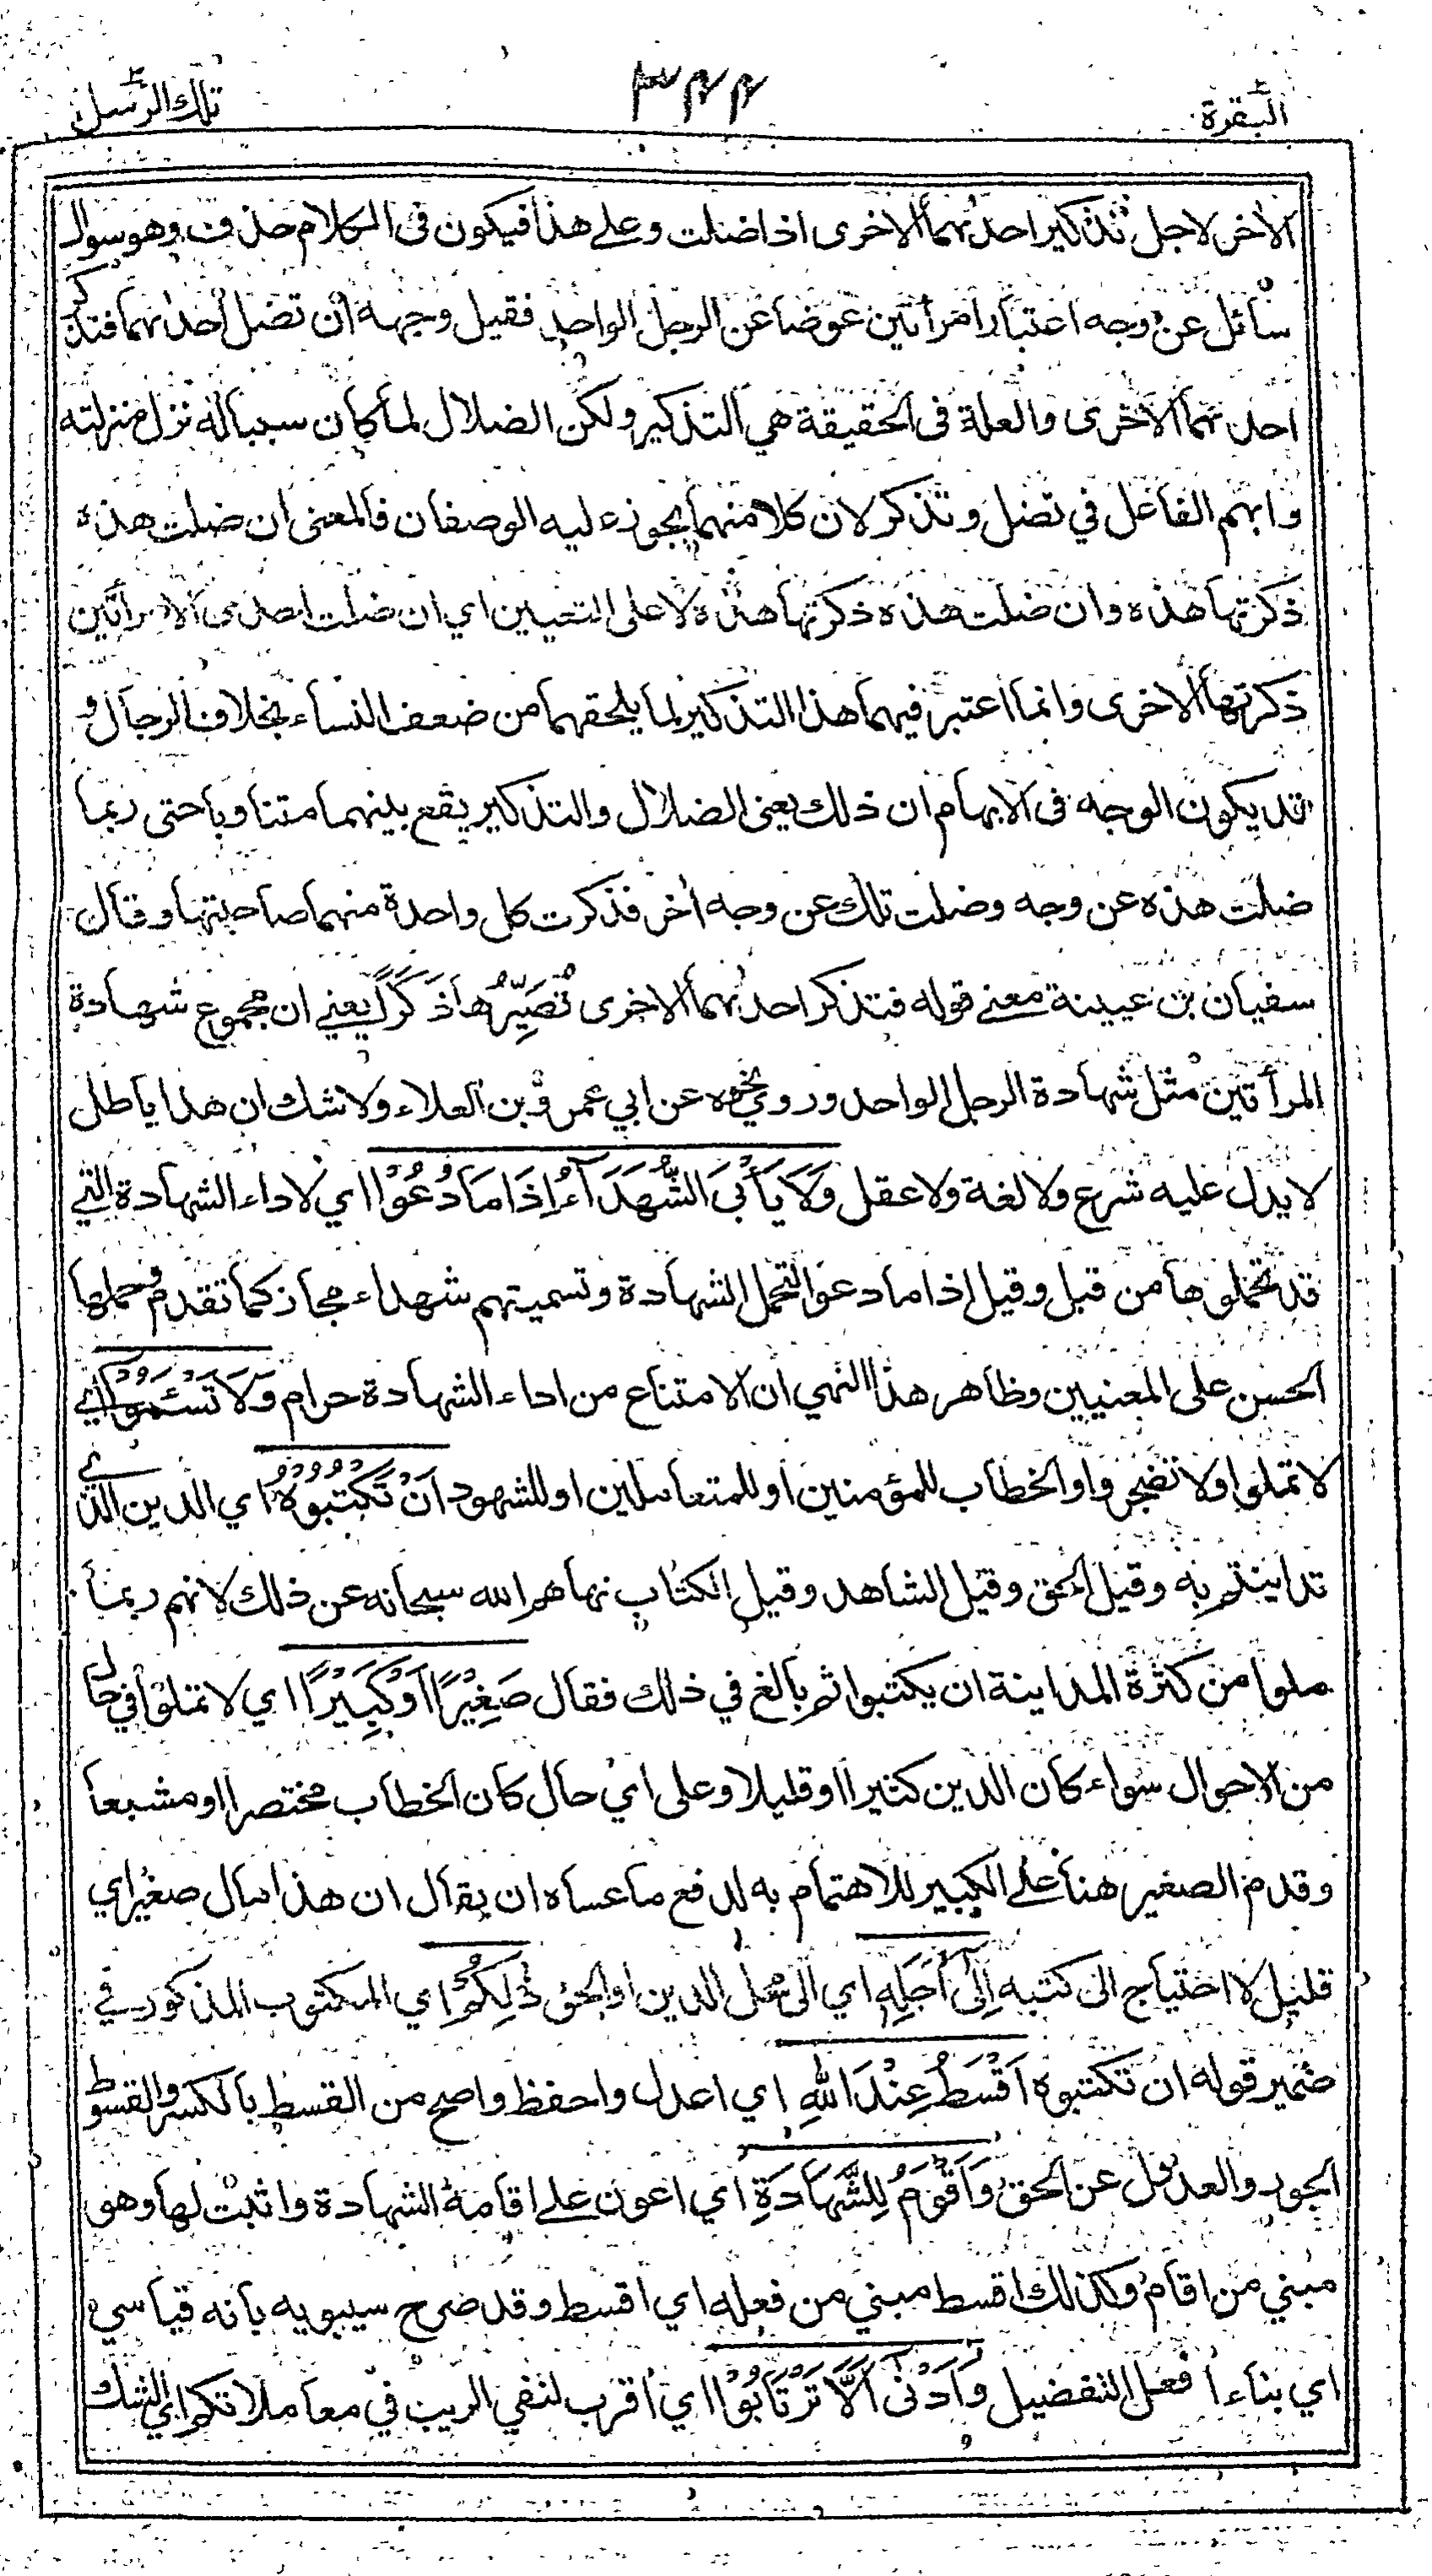 البقرة ٣٤٤ تلك الرسل
الاخر لاجل تذكير احدٰىهما الاخرى اذا ضلت وعلى هذا فيكون في الكلام حذف وهو سوال
سائل عن وجه اعتبار امرأتين عوضا عن الرجل الواحد فقيل وجهه ان تضل احدٰىهما فتذكر
احدٰىهما الاخرى والعلة في الحقيقة هي التذكير ولكن الضلال لما كان سببا له نزل منزلته
وابهم الفاعل في تضل وتذكر لان كلا منهما يجوز عليه الوصفان فالمعنى ان ضلت هذه
ذكرتها هذه وان ضلت هذه ذكرتها هذه لا على التعيين اي ان ضلت احدى الامرأتين
ذكرتها الاخرى وانما اعتبر فيهما هذا التذكير لما يلحقهما من ضعف النساء بخلاف الرجال و
قد يكون الوجه في الابهام ان ذلك يعني الضلال والتذكير يقع بينهما متناوبا حتى ربما
ضلت هذه عن وجه وضلت تلك عن وجه اٰخر فذكرت كل واحدة منهما صاحبتها وقال
سفيان بن عيينة معنى قوله فتذكر احدٰىهما الاخرى تُصَيِّرُها ذَكَرًا يعني ان مجموع شهادة
المرأتين مثل شهادة الرجل الواحد وروي نحوه عن ابي عمرو بن العلاء ولا شك ان هذا باطل
لا يدل عليه شرع ولا لغة ولا عقل وَلَا يَأْبَ الشُّهَدَآءُ اِذَا مَا دُعُوْا اي لاداء الشهادة التي
قد تحملوها من قبل وقيل اذا ما دعوا لتحمل الشهادة وتسميتهم شهداء مجاز كما تقدم وحملها
الحسن على المعنيين وظاهر هذا النهي ان الامتناع من اداء الشهادة حرام وَلَا تَسْـَٔمُوْا اي
لا تملوا ولا تضجروا والخطاب للمؤمنين او للمتعاملين او للشهود اَنْ تَكْتُبُوْهُ اي الدين الذي
تداينتم به وقيل الحق وقيل الشاهد وقيل الكتاب نهاهم الله سبحانه عن ذلك لانهم ربما
ملوا من كثرة المداينة ان يكتبوا ثم بالغ في ذلك فقال صَغِيْرًا اَوْ كَبِيْرًا اي لا تملوا في حال
من الاحوال سواء كان الدين كثيرا او قليلا وعلى اي حال كان الخطاب مختصرا او مشبعا
وقدم الصغير هنا على الكبير للاهتمام به لدفع ما عساه ان يقال ان هذا مال صغير اي
قليل لا احتياج الى كتبه اِلٰٓى اَجَلِهٖ اي الى محل الدين او الحق ذٰلِكُمْ اي المكتوب المذكور في
ضمير قوله ان تكتبوه اَقْسَطُ عِنْدَ اللّٰهِ اي اعدل واحفظ واصح من القسط بالكسر والقسوط
الجور والعدول عن الحق وَاَقْوَمُ لِلشَّهَادَةِ اي اعون على اقامة الشهادة واثبت لها وهو
مبني من اقام وكذلك اقسط مبني من فعله اي اقسط وقد صرح سيبويه بانه قياسي
اي بناء افعل التفضيل وَاَدْنٰٓى اَلَّا تَرْتَابُوْٓا اي اقرب لنفي الريب في معاملاتكم اي الشك